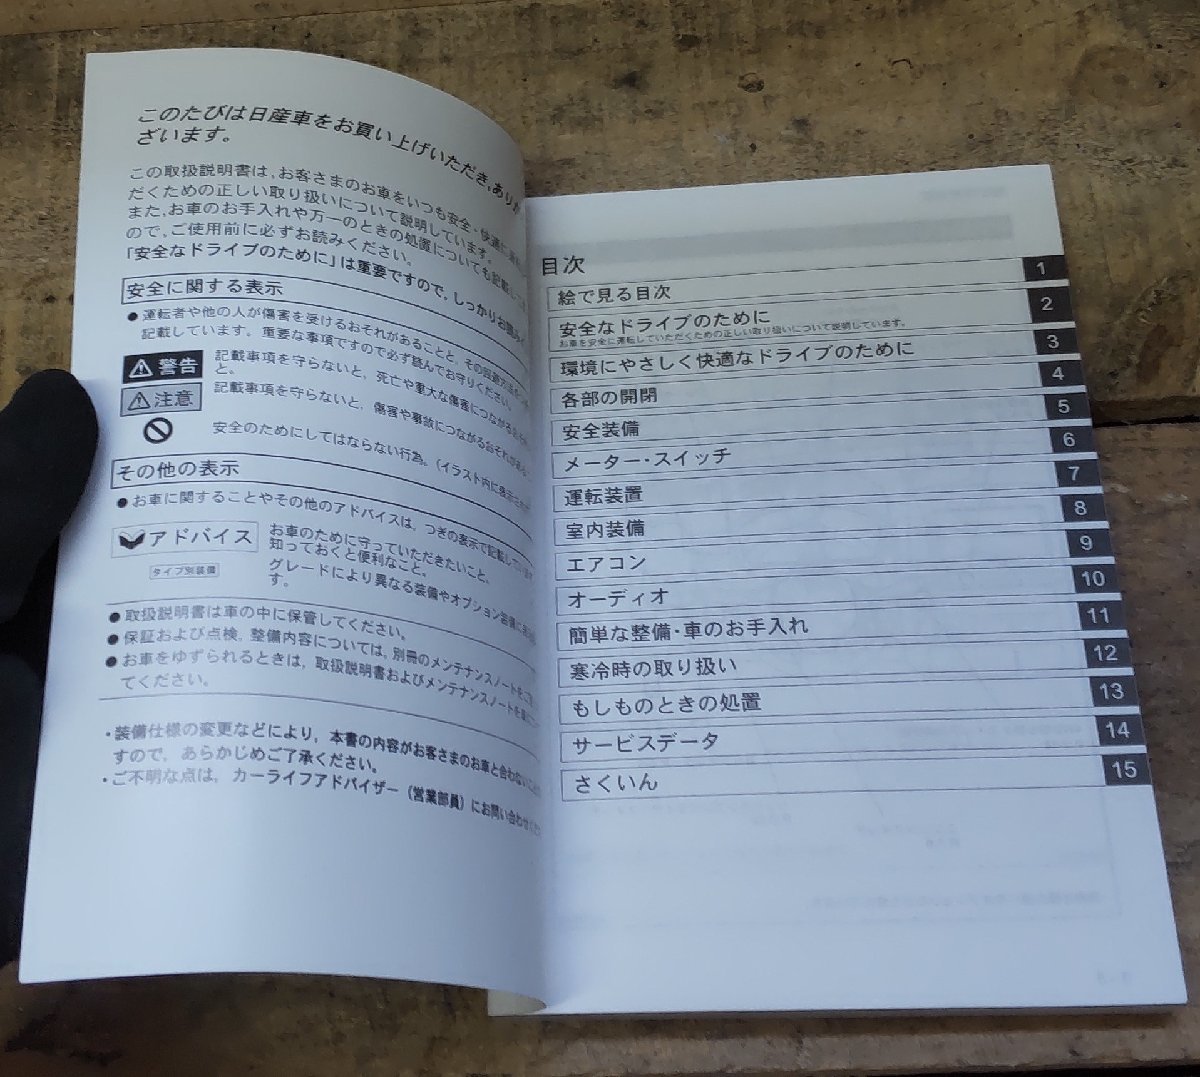 このたびは日産車をお買い上げいただき、ありが
ざいます。
この取扱説明書は、お客さまのお車をいつも安全・快適に
だくための正しい取り扱いについて説明しています。
また、お車のお手入れや万一のときの処置についても記載し
ので、ご使用前に必ずお読みください。
「安全なドライブのために」は重要ですので、しっかりお読み
安全に関する表示
●運転者や他の人が傷害を受けるおそれがあることと、その回避方法を
記載しています。重要な事項ですので必ず読んでお守りください。
警告
記載事項を守らないと、死亡や重大な傷害につながる
と。
注意
記載事項を守らないと、傷害や事故につながるおそれが
安全のためにしてはならない行為。(イラスト内に表示
その他の表示
●お車に関することやその他のアドバイスは、つぎの表示で記載してい
アドバイス
お車のために守っていただきたいこと、
知っておくと便利なこと。
タイプ別装備
グレードにより異なる装備やオプション装備に
す。
●取扱説明書は車の中に保管してください。
●保証および点検、整備内容については、別冊のメンテナンスノートをご
●お車をゆずられるときは、取扱説明書およびメンテナンスノートを
てください。
・装備仕様の変更などにより、本書の内容がお客さまのお車と合わない
すので、あらかじめご了承ください。
・ご不明な点は、カーライフアドバイザー(営業部員)にお問い合わせ
目次
絵で見る目次 1
安全なドライブのために 2
お車を安全に運転していただくための正しい取り扱いについて説明しています。
環境にやさしく快適なドライブのために 3
各部の開閉 4
安全装備 5
メーター・スイッチ 6
運転装置 7
室内装備 8
エアコン 9
オーディオ 10
簡単な整備・車のお手入れ 11
寒冷時の取り扱い 12
もしものときの処置 13
サービスデータ 14
さくいん 15